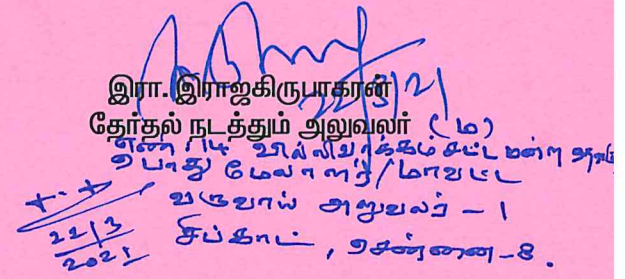 22/3/21
இரா. இராஜகிருபாகரன்
தேர்தல் நடத்தும் அலுவலர் (ம)
எண்: 14 வில்லிவாக்கம் சட்ட மன்ற
பொது மேலாளர் / மாவட்ட
வருவாய் அலுவலர் - 1
22/3
2021
சிப்காட், சென்னை - 8.